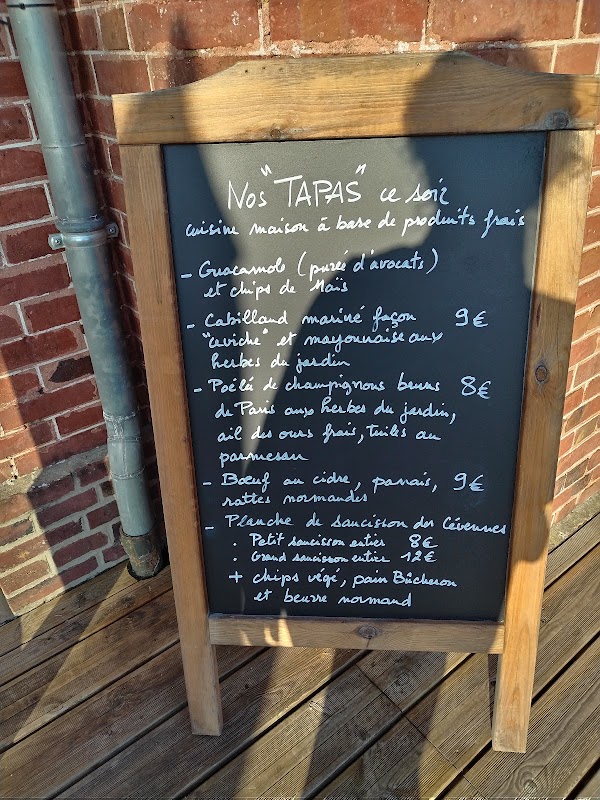 Nos "TAPAS" ce soir
cuisine maison à base de produits frais
- Guacamole (purée d'avocats)
et chips de Maïs
- Cabillaud mariné façon 9€
"ceviche" et mayonnaise aux
herbes du jardin
- Poêlée de champignons bruns 8€
de Paris aux herbes du jardin,
ail des ours frais, tuiles au
parmesan
- Bœuf au cidre, panais, 9€
rattes normandes
- Planche de saucisson des Cévennes
. Petit saucisson entier 8€
. Grand saucisson entier 12€
+ chips végé, pain Bûcheron
et beurre normand